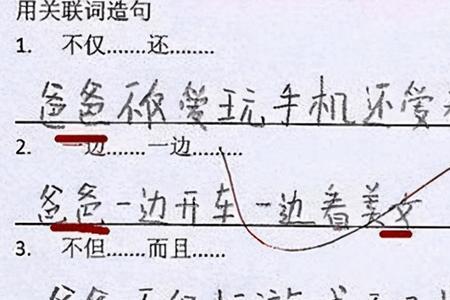 用关联词造句
1. 不仅.......还........
爸爸不仅爱玩手机还爱
2. 一边.......一边.........
爸爸一边开车一边看美女
3. 不但.......而且......